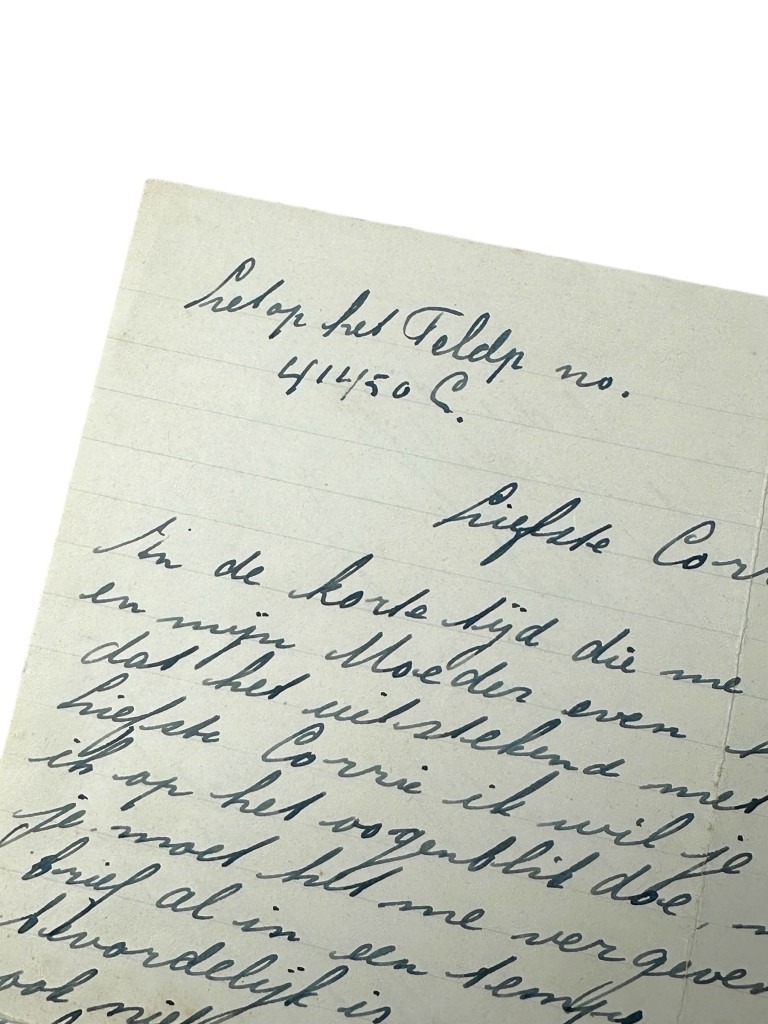 Let op het Feldp no.
41450 C.
Liefste Corr
In de korte tijd die me
en mijn Moeder even
dat het uitstekend met
Liefste Corrie ik wil je
ik op het oogenblik doe,
je moet het me vergeven
brief al in een tempo
bevordelijk is
ook niet